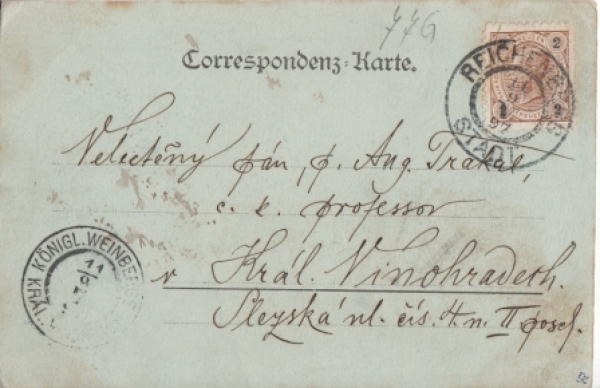 776
Correspondenz-Karte.
2
REICHENBERG
STADT
11
9
97
Velectěný pán, p. Aug. Trakal,
c. k. professor
v Král. Vinohradech.
Slezská ul. čís. 4. n. II posch.
KÖNIGL. WEINBERGE
KRÁL
11
9